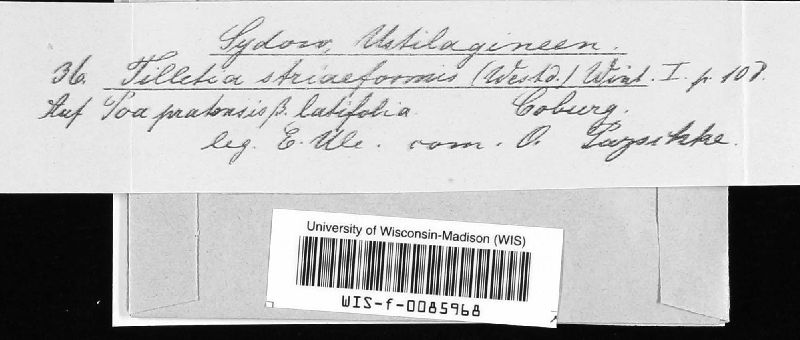 Sydow, Ustilagineen.
36. Tilletia striaeformis (Westd.) Wint. I. p. 108.
Auf Poa pratensis β. latifolia. Coburg.
leg. E. Ule. com. O. Pazschke.
University of Wisconsin-Madison (WIS)
WIS-f-0085968